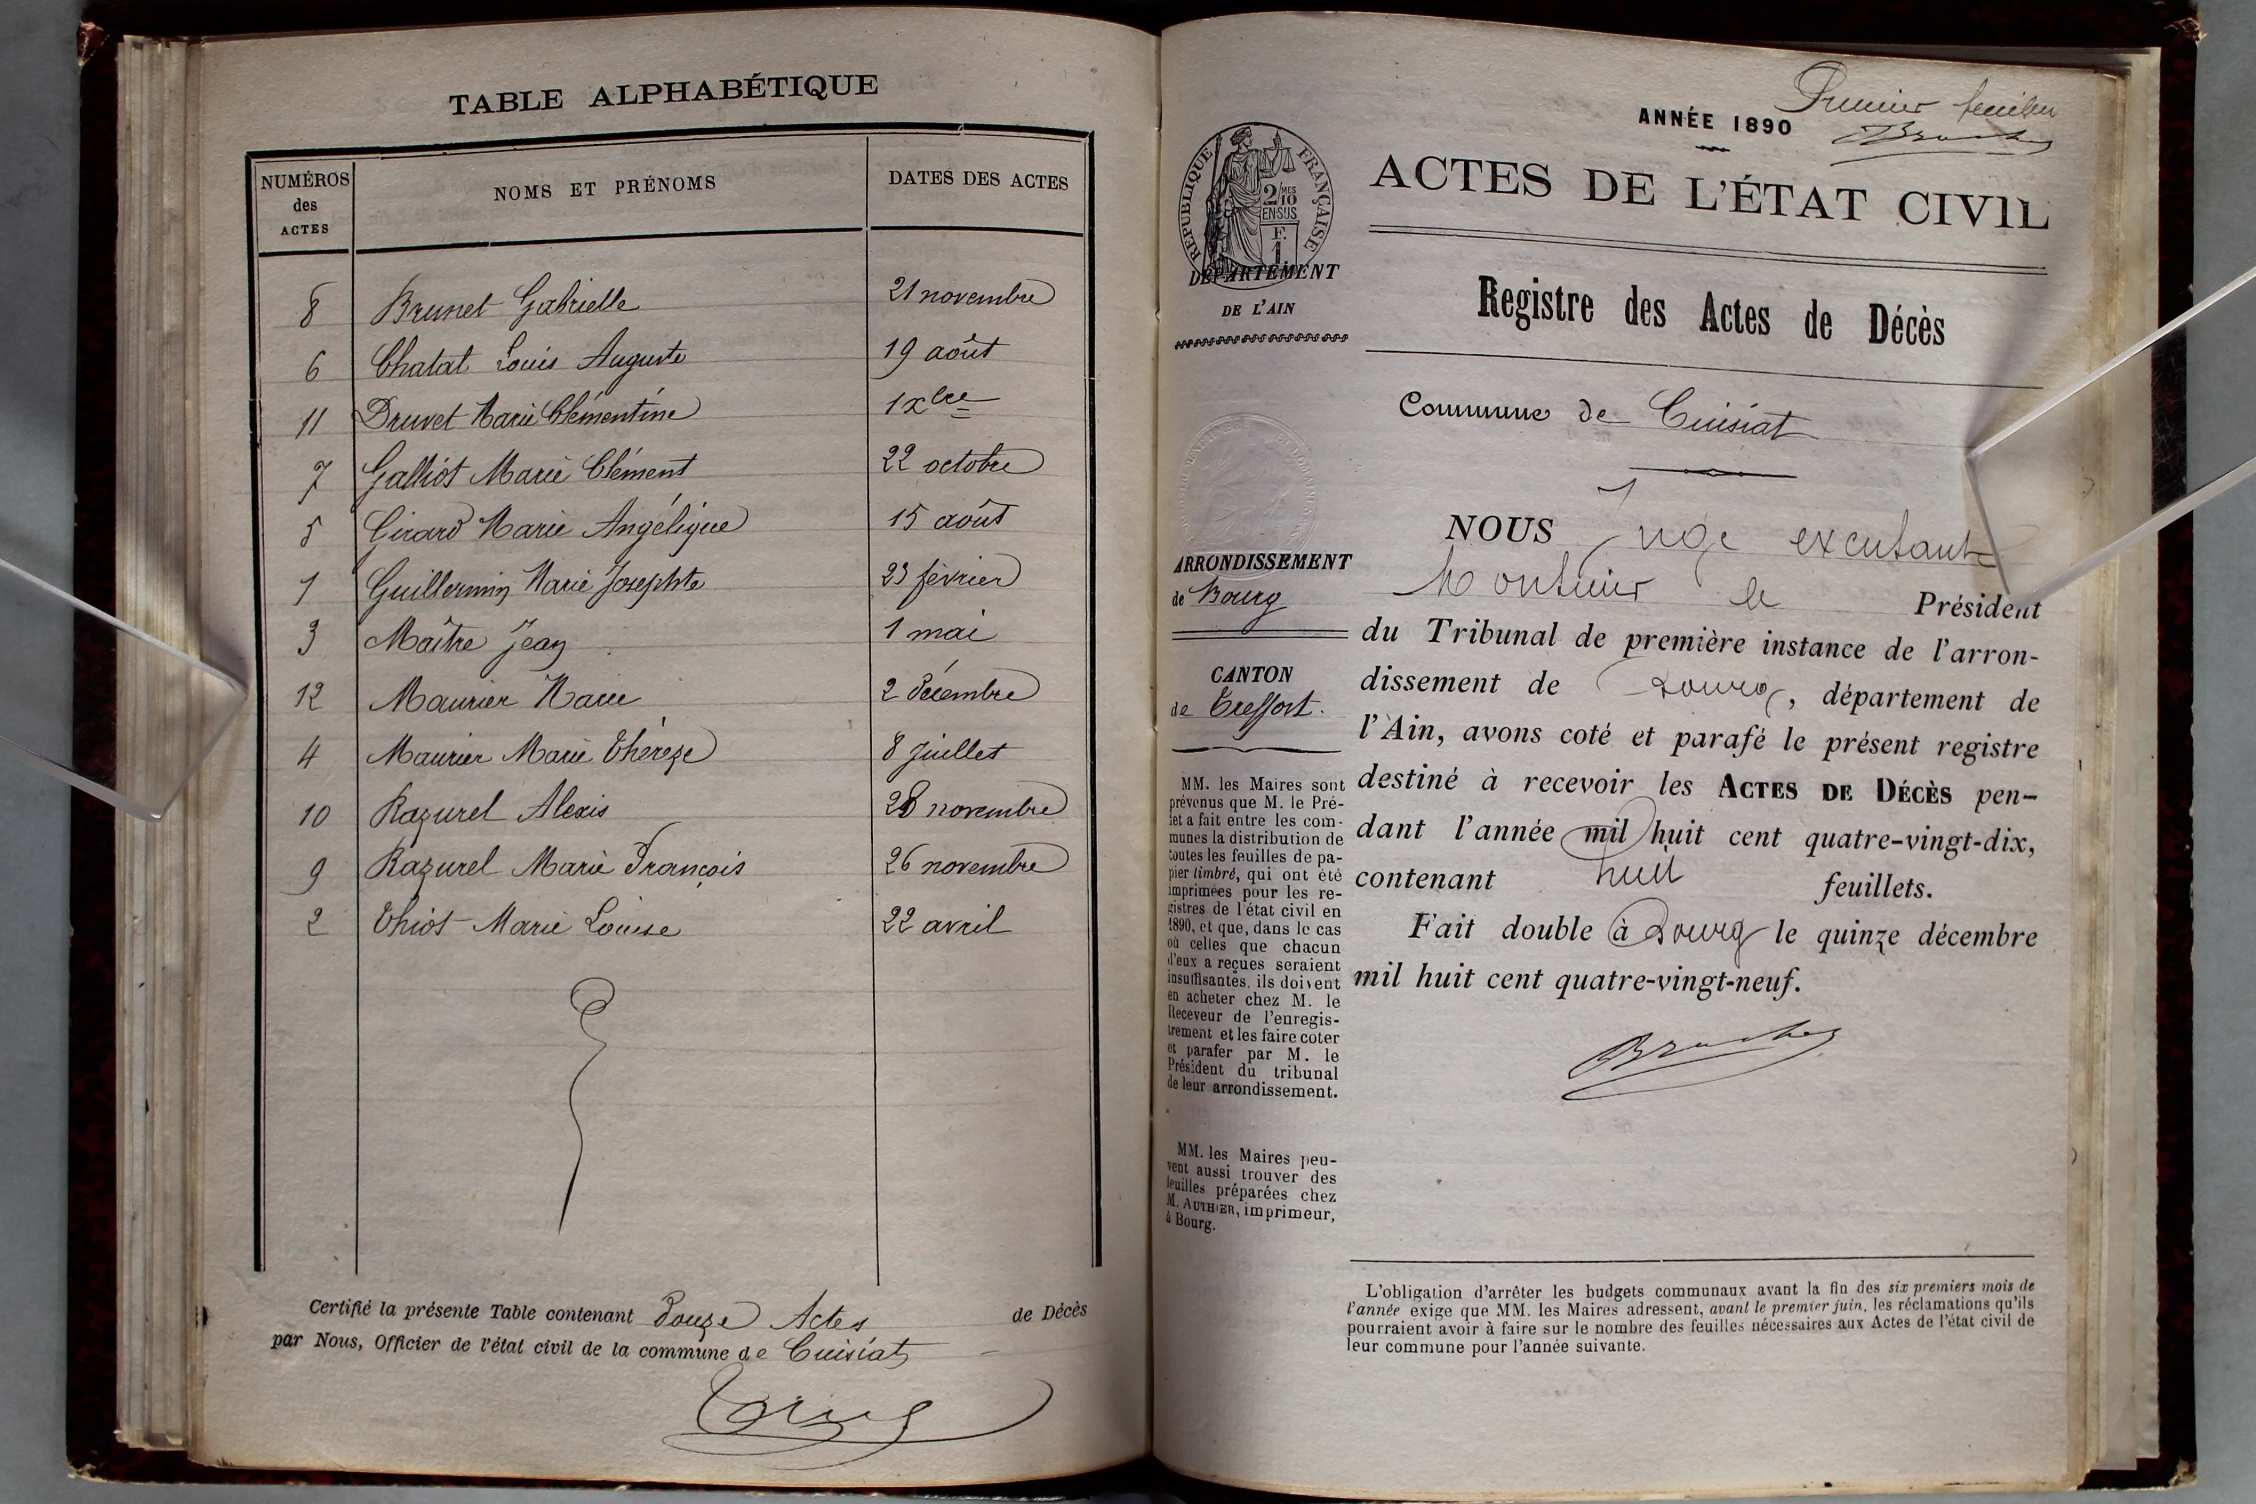 TABLE ALPHABÉTIQUE
NUMÉROS des ACTES NOMS ET PRÉNOMS DATES DES ACTES
8 Brunet Gabrielle 21 novembre
6 Chatat Louis Auguste 19 août
11 Druvet Marie Clémentine 1 xbre
7 Galliot Marie Clément 22 octobre
5 Girard Marie Angélique 15 août
1 Guillermin Marie Josephte 23 février
3 Maître Jean 1 mai
12 Maurier Marie 2 décembre
4 Maurier Marie Thérèze 8 Juillet
10 Razurel Alexis 28 novembre
9 Razurel Marie François 26 novembre
2 Thiot Marie Louise 22 avril
Certifié la présente Table contenant douze Actes de Décès
par Nous, Officier de l'état civil de la commune de Cuisiat
Premier feuillet
ANNÉE 1890
ACTES DE L'ÉTAT CIVIL
RÉPUBLIQUE FRANÇAISE
2/10 MES
EN SUS
F.
1
DÉPARTEMENT
DE L'AIN
Registre des Actes de Décès
Commune de Cuisiat
ARRONDISSEMENT
de Bourg
CANTON
de Treffort.
MM. les Maires sont
prévenus que M. le Pré-
fet a fait entre les com-
munes la distribution de
toutes les feuilles de pa-
pier timbré, qui ont été
imprimées pour les re-
gistres de l'état civil en
1890, et que, dans le cas
où celles que chacun
d'eux a reçues seraient
insuffisantes, ils doivent
en acheter chez M. le
Receveur de l'enregis-
trement et les faire coter
et parafer par M. le
Président du tribunal
de leur arrondissement.
MM. les Maires peu-
vent aussi trouver des
feuilles préparées chez
M. AUTHIER, imprimeur,
à Bourg.
NOUS Juge
le Président
du Tribunal de première instance de l'arron-
dissement de Bourg, département de
l'Ain, avons coté et parafé le présent registre
destiné à recevoir les ACTES DE DÉCÈS pen-
dant l'année mil huit cent quatre-vingt-dix,
contenant huit feuillets.
Fait double à Bourg le quinze décembre
mil huit cent quatre-vingt-neuf.
L'obligation d'arrêter les budgets communaux avant la fin des six premiers mois de
l'année exige que MM. les Maires adressent, avant le premier juin, les réclamations qu'ils
pourraient avoir à faire sur le nombre des feuilles nécessaires aux Actes de l'état civil de
leur commune pour l'année suivante.